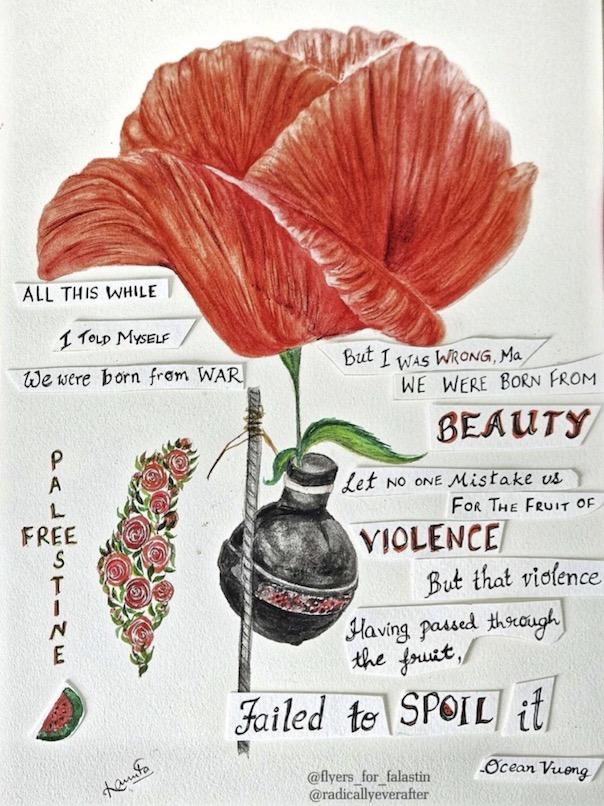 ALL THIS WHILE
I TOLD MYSELF
We were born from WAR
But I WAS WRONG, Ma
WE WERE BORN FROM
BEAUTY
Let NO ONE Mistake us
FOR THE FRUIT OF
VIOLENCE
But that violence
Having passed through
the fruit,
Failed to SPOIL it
Ocean Vuong
FREE
PALESTINE
@flyers_for_falastin
@radicallyeverafter